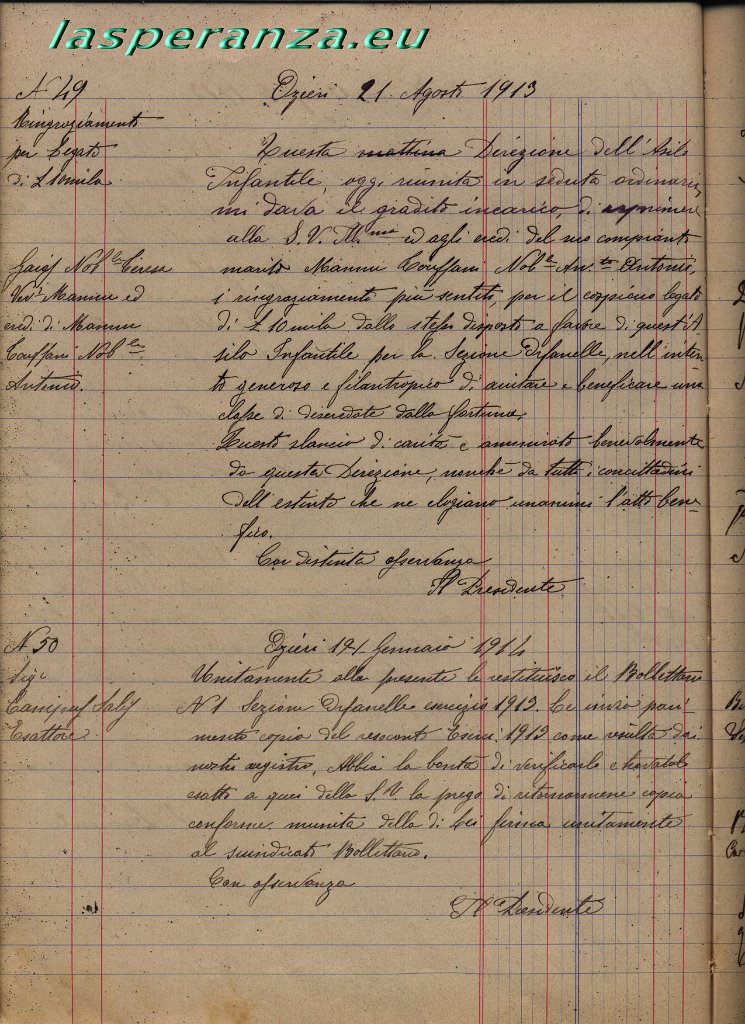 lasperanza.eu
N 49
Ringraziamento
per Legato
di £ 10mila
Ozieri 21 Agosto 1913
Questa mattina Direzione dell'Asilo
Infantile, oggi riunita in seduta ordinaria,
mi dava il gradito incarico, di esprimere
alla S. V. Ill.ma ed agli eredi del suo compianto
marito Mannu Touffani Nob.e Av.to Antonio,
i ringraziamento più sentito, per il cospicuo legato
di £ 10 mila dallo stesso disposto a favore di quest'A
silo Infantile per la Sezione Orfanelle, nell'inten
to generoso e filantropico di aiutare e beneficare una
classe di diseredate dalla fortuna.
Questo slancio di carità è ammirato benevolmente
da questa Direzione, nonché da tutti i concittadini
dell'estinto che ne elogiano unanimi l'atto bene-
fico.
Con distinta osservanza
Il Presidente
Nob.le Teresa
Ved.a Mannu ed
eredi di Mannu
Touffani Nob.le
Antonio.
N 50
Sig.
Esattore
Ozieri 121 Gennaio 1914
Unitamente alla presente le restituisco il Bollettario
N 1 Sezione Orfanelle esercizio 1913. Le invio pari-
mento copia del resoconto Eserci 1913 come risulta dai
nostri registri. Abbia la bontà di verificarlo e trovatolo
esatto a quei della S. V. la prego di ritornarmene copia
conforme munita della di Lei firma unitamente
al suindicato Bollettario.
Con osservanza
Il Presidente